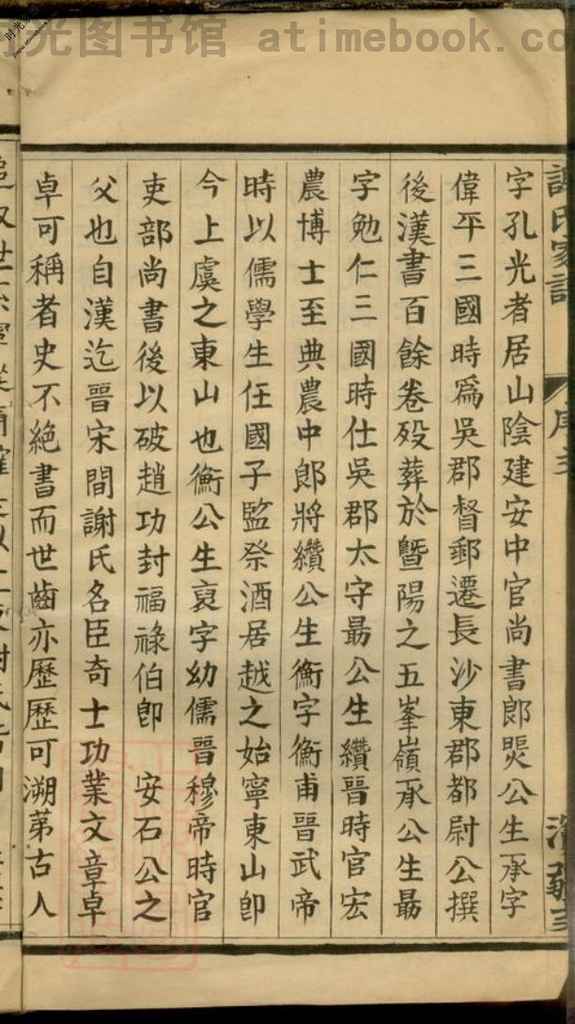 时光图书馆 atimebook.co
謝氏家譜
序
字孔光者居山陰建安中官尚書郎煚公生承字
偉平三國時爲吳郡督郵遷長沙東郡都尉公撰
後漢書百餘卷歿葬於曁陽之五峯嶺承公生勗
字勉仁三國時仕吳郡太守勗公生纘晉時官宏
農博士至典農中郎將纘公生衡字衡甫晉武帝
時以儒學生任國子監祭酒居越之始寧東山卽
今上虞之東山也衡公生裒字幼儒晉穆帝時官
吏部尚書後以破趙功封福祿伯卽 安石公之
父也自漢迄晉宋間謝氏名臣奇士功業文章卓
卓可稱者史不絕書而世齒亦歷歷可溯苐古人